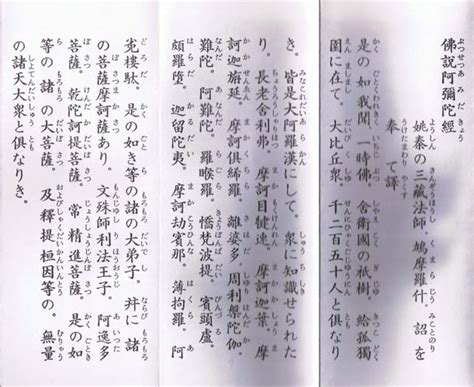 佛說阿彌陀經
姚秦の三藏法師。鳩摩羅什。詔を
奉て譯
是の如我聞。一時佛。舍衞國の祇樹。給孤獨
園に在て。大比丘衆。千二百五十人と俱なり
き。皆是大阿羅漢にして。衆に知識せられた
り。長老舍利弗。摩訶目犍連。摩訶迦葉。摩
訶迦旃延。摩訶俱絺羅。離婆多。周利槃陀伽。
難陀。阿難陀。羅睺羅。憍梵波提。賓頭盧。
頗羅墮。迦留陀夷。摩訶劫賓那。薄拘羅。阿
㝹樓駄。是の如き等の諸の大弟子。幷に諸
の菩薩摩訶薩あり。文殊師利法王子。阿逸多
菩薩。乾陀訶提菩薩。常精進菩薩。是の如
等の諸の大菩薩。及釋提桓因等の。無量
の諸天大衆と俱なりき。